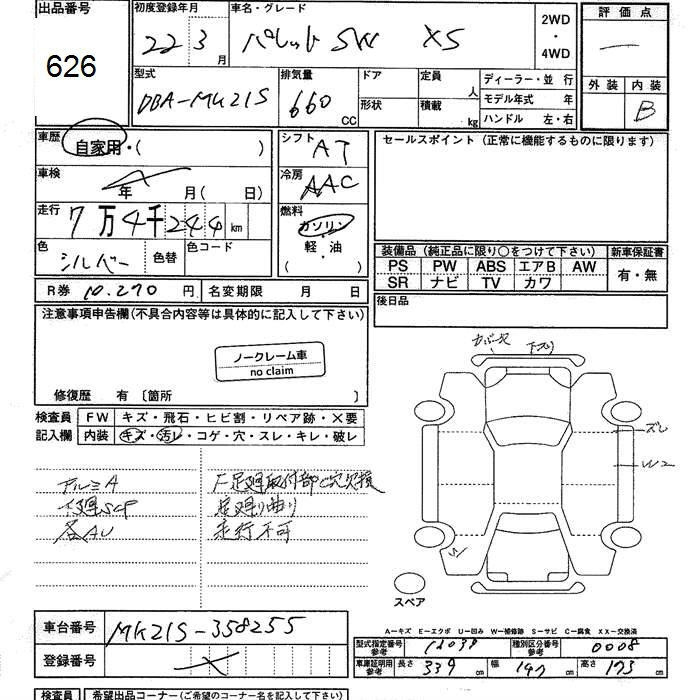 出品番号
626
初度登録年月
22 3月
車名・グレード
パレット SW XS
2WD
・
4WD
評価点
―
外装 内装
B
型式
DBA-MK21S
排気量
660 CC
ドア
形状
定員 人
積載 kg
ディーラー・並行
モデル年式 年
ハンドル 左・右
車歴
自家用・( )
車検
年 月(日)
走行
7万4千244km
色
シルバー
色替
色コード
シフト
AT
冷房
AAC
燃料
ガソリン
軽・油
セールスポイント (正常に機能するものに限ります)
装備品 (純正品に限り○をつけて下さい)
PS PW ABS エアB AW
SR ナビ TV カワ
新車保証書
有・無
R券 10.270円
名変期限 月 日
後日品
注意事項申告欄(不具合内容等は具体的に記入して下さい)
ノークレーム車
no claim
修復歴 有〔箇所 〕
検査員
記入欄
FW キズ・飛石・ヒビ割・リペア跡・×要
内装 キズ・汚レ・コゲ・穴・スレ・キレ・破レ
アルミA
下廻SCP
各AU
F足廻取付部C穴欠損
足廻り曲り
走行不可
カバーX
下ズリ
ズレ
W2
W
スペア
A-キズ E-エクボ U-凹み W-補修跡 S-サビ C-腐食 XX-交換済
車台番号
MK21S-358255
登録番号
型式指定番号
参考
12039
種別区分番号
参考
0008
車庫証明用
参考
長さ 339cm
幅 147cm
高さ 173cm
検査員
希望出品コーナー(ご希望のコーナー名を記入して下さい)